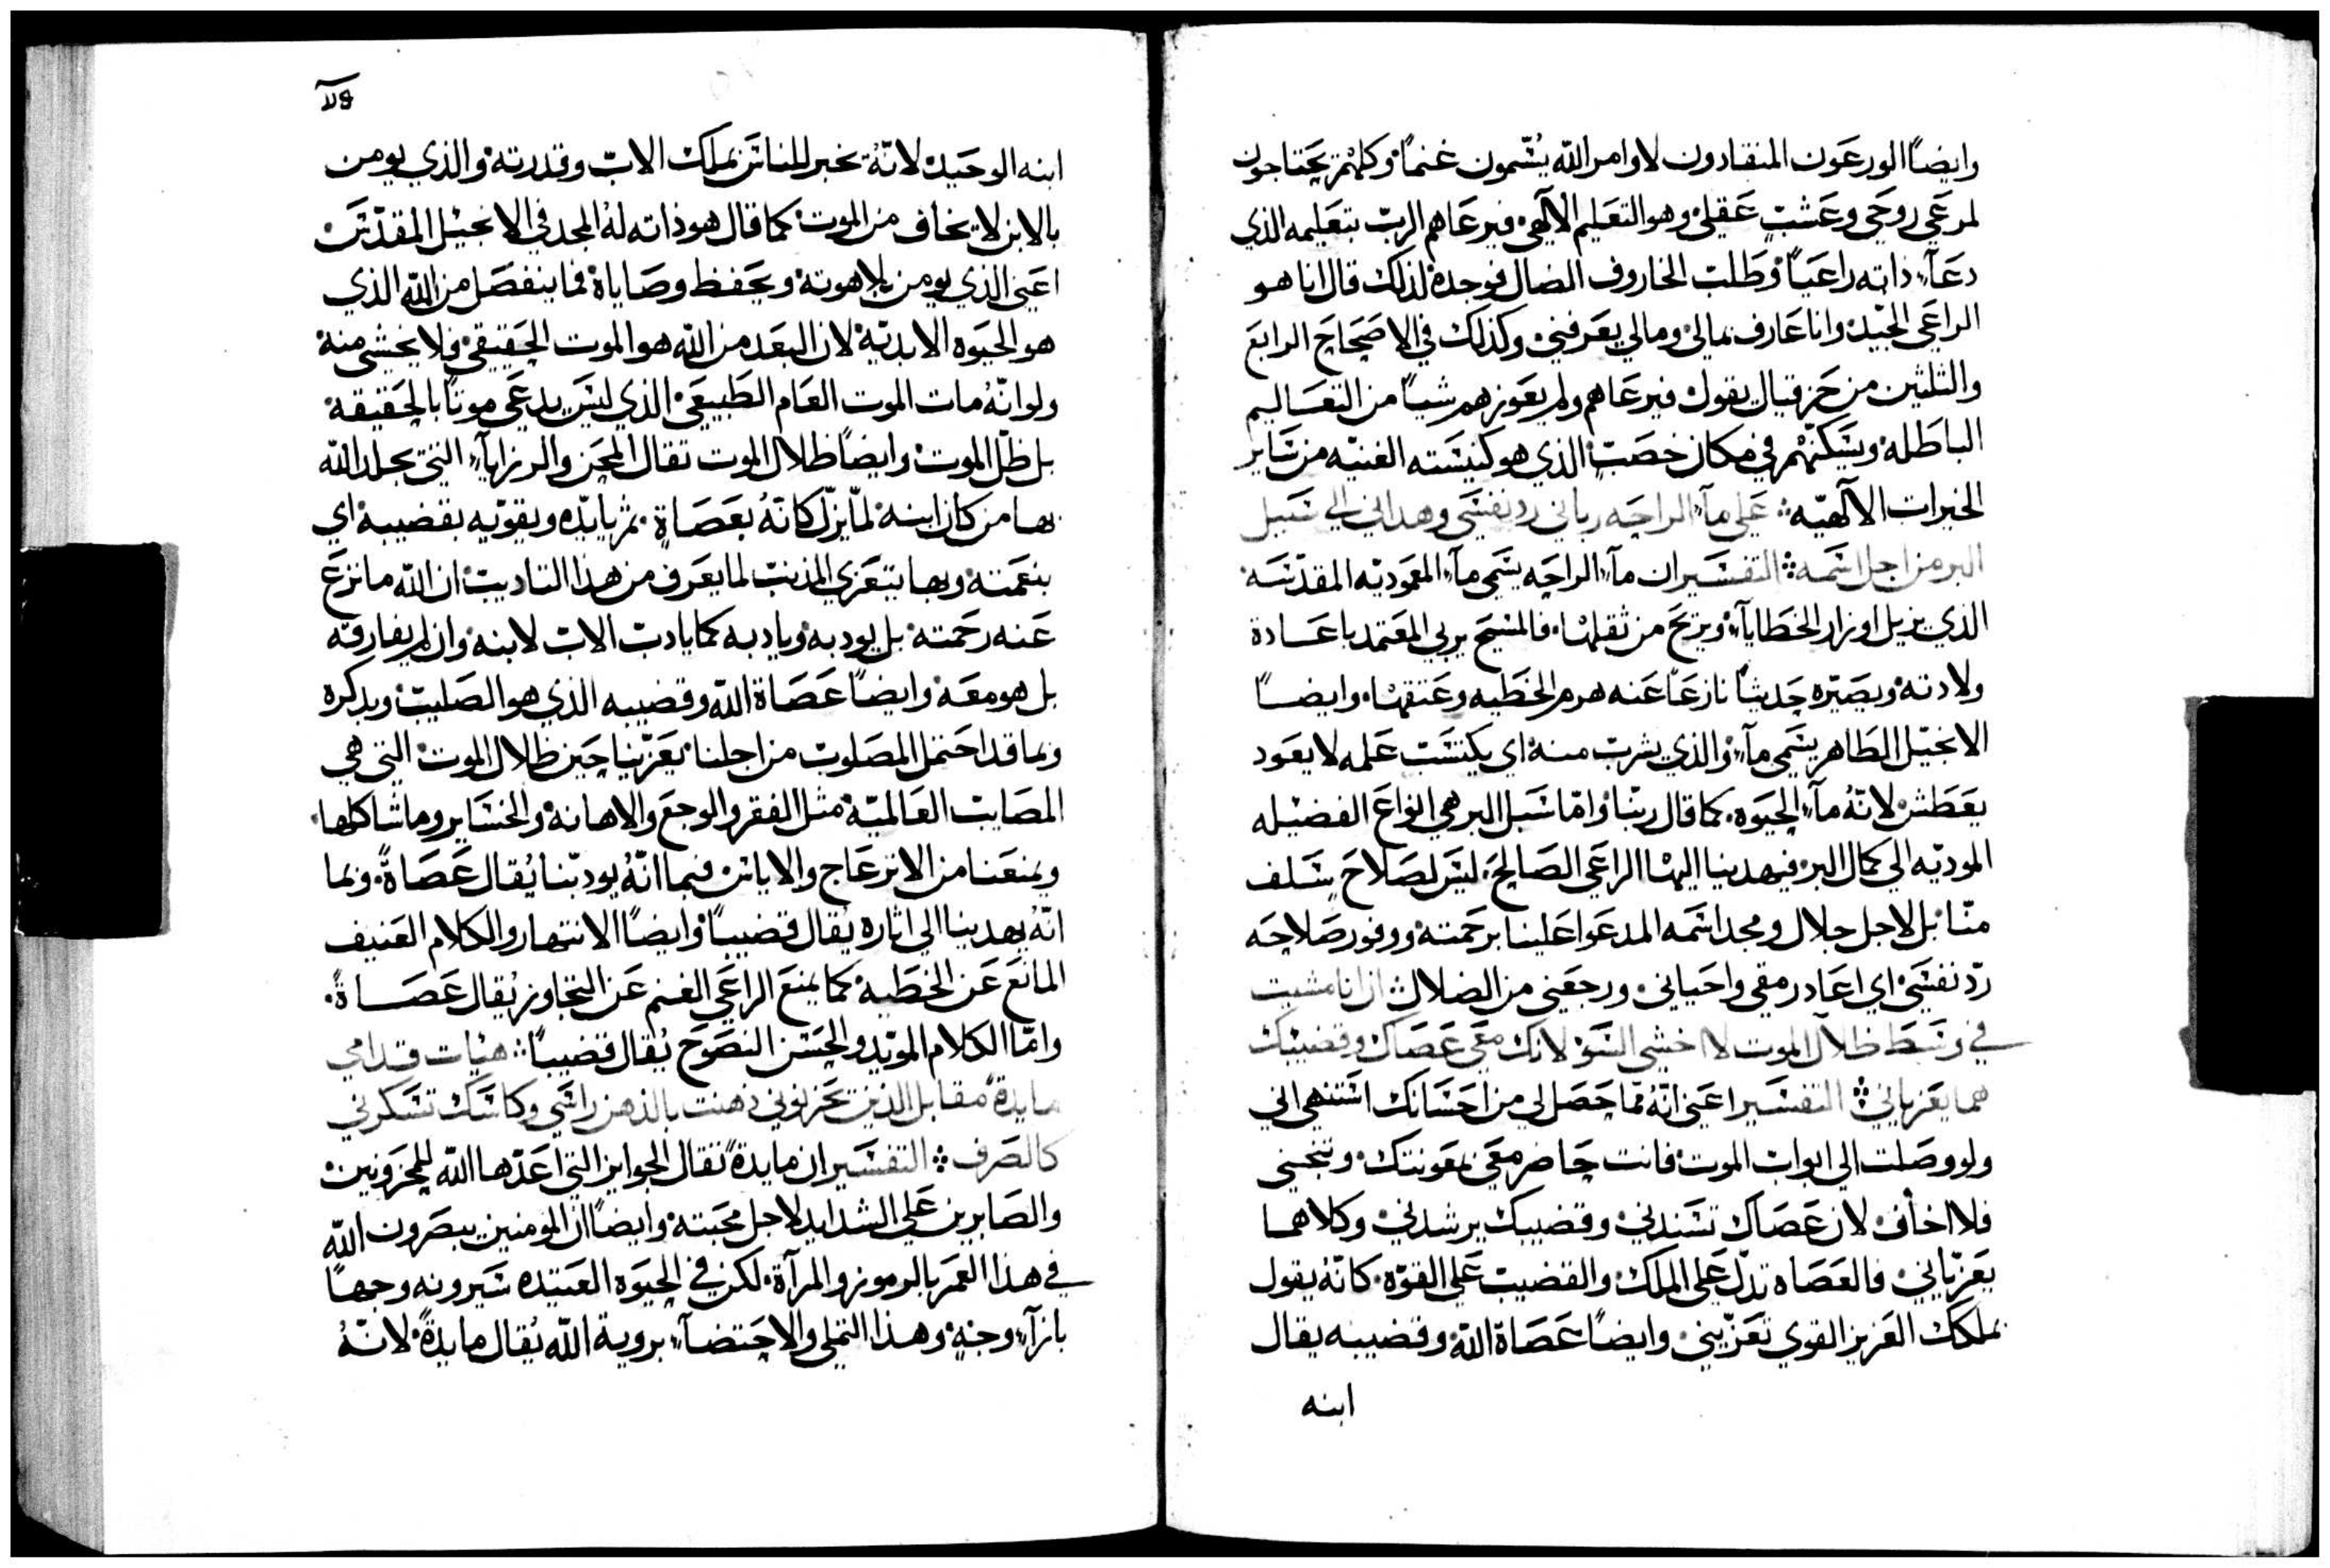 وايضًا الورعون المنقادون لاوامر الله يسّمون غنمًا وكلهم يحتاجون
لمرعى روحي وعشبٍ عقلي وهو التعليم الالهي فيرعاهم الرب بتعليمه الذي
دعاء ذاته راعيًا وطلب الخاروف الضال فوجده لذلك قال انا هو
الراعي الجيّد وانا عارف بمالي ومالي يعرفني وكذلك في الاصحاح الرابع
والثلثين من حزقيال يقول فيرعاهم ولم يعوزهم شيًا من التعاليم
الباطله ويسكنهم في مكان خصبٍ الذي هو كنيسته الغنيه من ساير
الخيرات الالهيّه ۞ على ماء الراحه رباني رد نفسي وهداني الى سبيل
البر من اجل اسمه ۞ التفسير ان ماء الراحه يسمى ماء المعموديه المقدسه
الذي يزيل اوزار الخطاياء ويزيح من ثقلها فالمسيح يربي المعتمد باعادة
ولادته ويصيّره حديثًا نازعًا عنه هرم الخطيه وعتقها وايضًا
الانجيل الطاهر يسمى ماء والذي يشرب منه اي يكتسب علمه لا يعود
يعطش لانّهُ ماء الحيوه كما قال ربنا وامّا سبل البر هي انواع الفضيله
الموديه الى كمال البر فيهدينا اليها الراعي الصالح ليس لصلاح سلف
منّا بل لاجل جلال ومجد اسمه المدعوا علينا برحمته ووفور صلاحه
ردّ نفسي اي اعاد رمقي واحياني ورجعني من الضلال ۞ ان انا مشيت
في وسط ظلال الموت لا اخشى السؤ لانك معي عصاك وقضيبك
هما يعزياني ۞ التفسير اعني انّهُ ممّا حصل لي من احسانك اشتهي اني
ولو وصلت الى ابواب الموت فانت حاضر معي بمعونتك وتنجيني
فلا اخاف لان عصاك تسندني وقضيبك يرشدني وكلاهما
يعزّياني فالعصاه تدلّ على الملك والقضيب على القوّة كانّهُ يقول
بملكك العزيز القوي تعزّيني وايضًا عصاة الله وقضيبه يقال
ابنه
ابنه الوحيد لانّهُ يخبر للناس بملك الاب وقدرته والذي يومن
بالابن لا يخاف من الموت كما قال هو ذاته لهُ المجد في الانجيل المقدّس
اعني الذي يومن بلاهوته ويحفظ وصاياه فما ينفصل من الله الذي
هو الحيوه الابديّة لان البعد من الله هو الموت الحقيقي فلا يخشى منه
ولو انّهُ مات الموت العام الطبيعي الذي ليس يدعى موتًا بالحقيقه
بل ظلّ الموت وايضًا ظلال الموت تقال المحن والرزاياء التي يجلد الله
بها من كان ابنه لمّا يزلّ كانّهُ بعصاةٍ ثم يايدّه ويقوّيه بقضيبه اي
بنعمته وبها يتعزى المذنب لما يعرف من هذا التاديب ان الله ما نزع
عنه رحمته بل يودبه ويادبه كما يادب الاب لابنه وان لم يفارقه
بل هو معه وايضًا عصاة الله وقضيبه الذي هو الصليب وبذكره
وبما قد احتمل المصلوب من اجلنا يعزّينا حين ظلال الموت التي هي
المصايب العالميّة مثل الفقر والوجع والاهانه والخساير وما شاكلها
ويمنعنا من الانزعاج والاياس فبما انّهُ يودبّنا يُقال عصاةً وبما
انّهُ يهدينا الى اثاره يُقال قضيبًا وايضًا الانتهار والكلام العنيف
المانع عن الخطيه كما يمنع الراعي الغنم عن التجاوز يُقال عصاةً
وامّا الكلام المويّد والحسن النصوح يُقال قضيبًا ۞ هيات قدامي
مايدةً مقابل الذين يحزنوني دهنت بالدهن راسي وكاسك تسكرني
كالصرف ۞ التفسير ان مايدةً تقال الجوايز التي اعدّها الله للمحزونين
والصابرين على الشدايد لاجل محبته وايضًا ان المومنين يبصرون الله
في هذا العمر بالرموز والمرآة لكن في الحيوه العتيده سيرونه وجهًا
بازاء وجهٍ وهذا التملي والاحتضاء بروية الله يُقال مايدةً لانّهُ